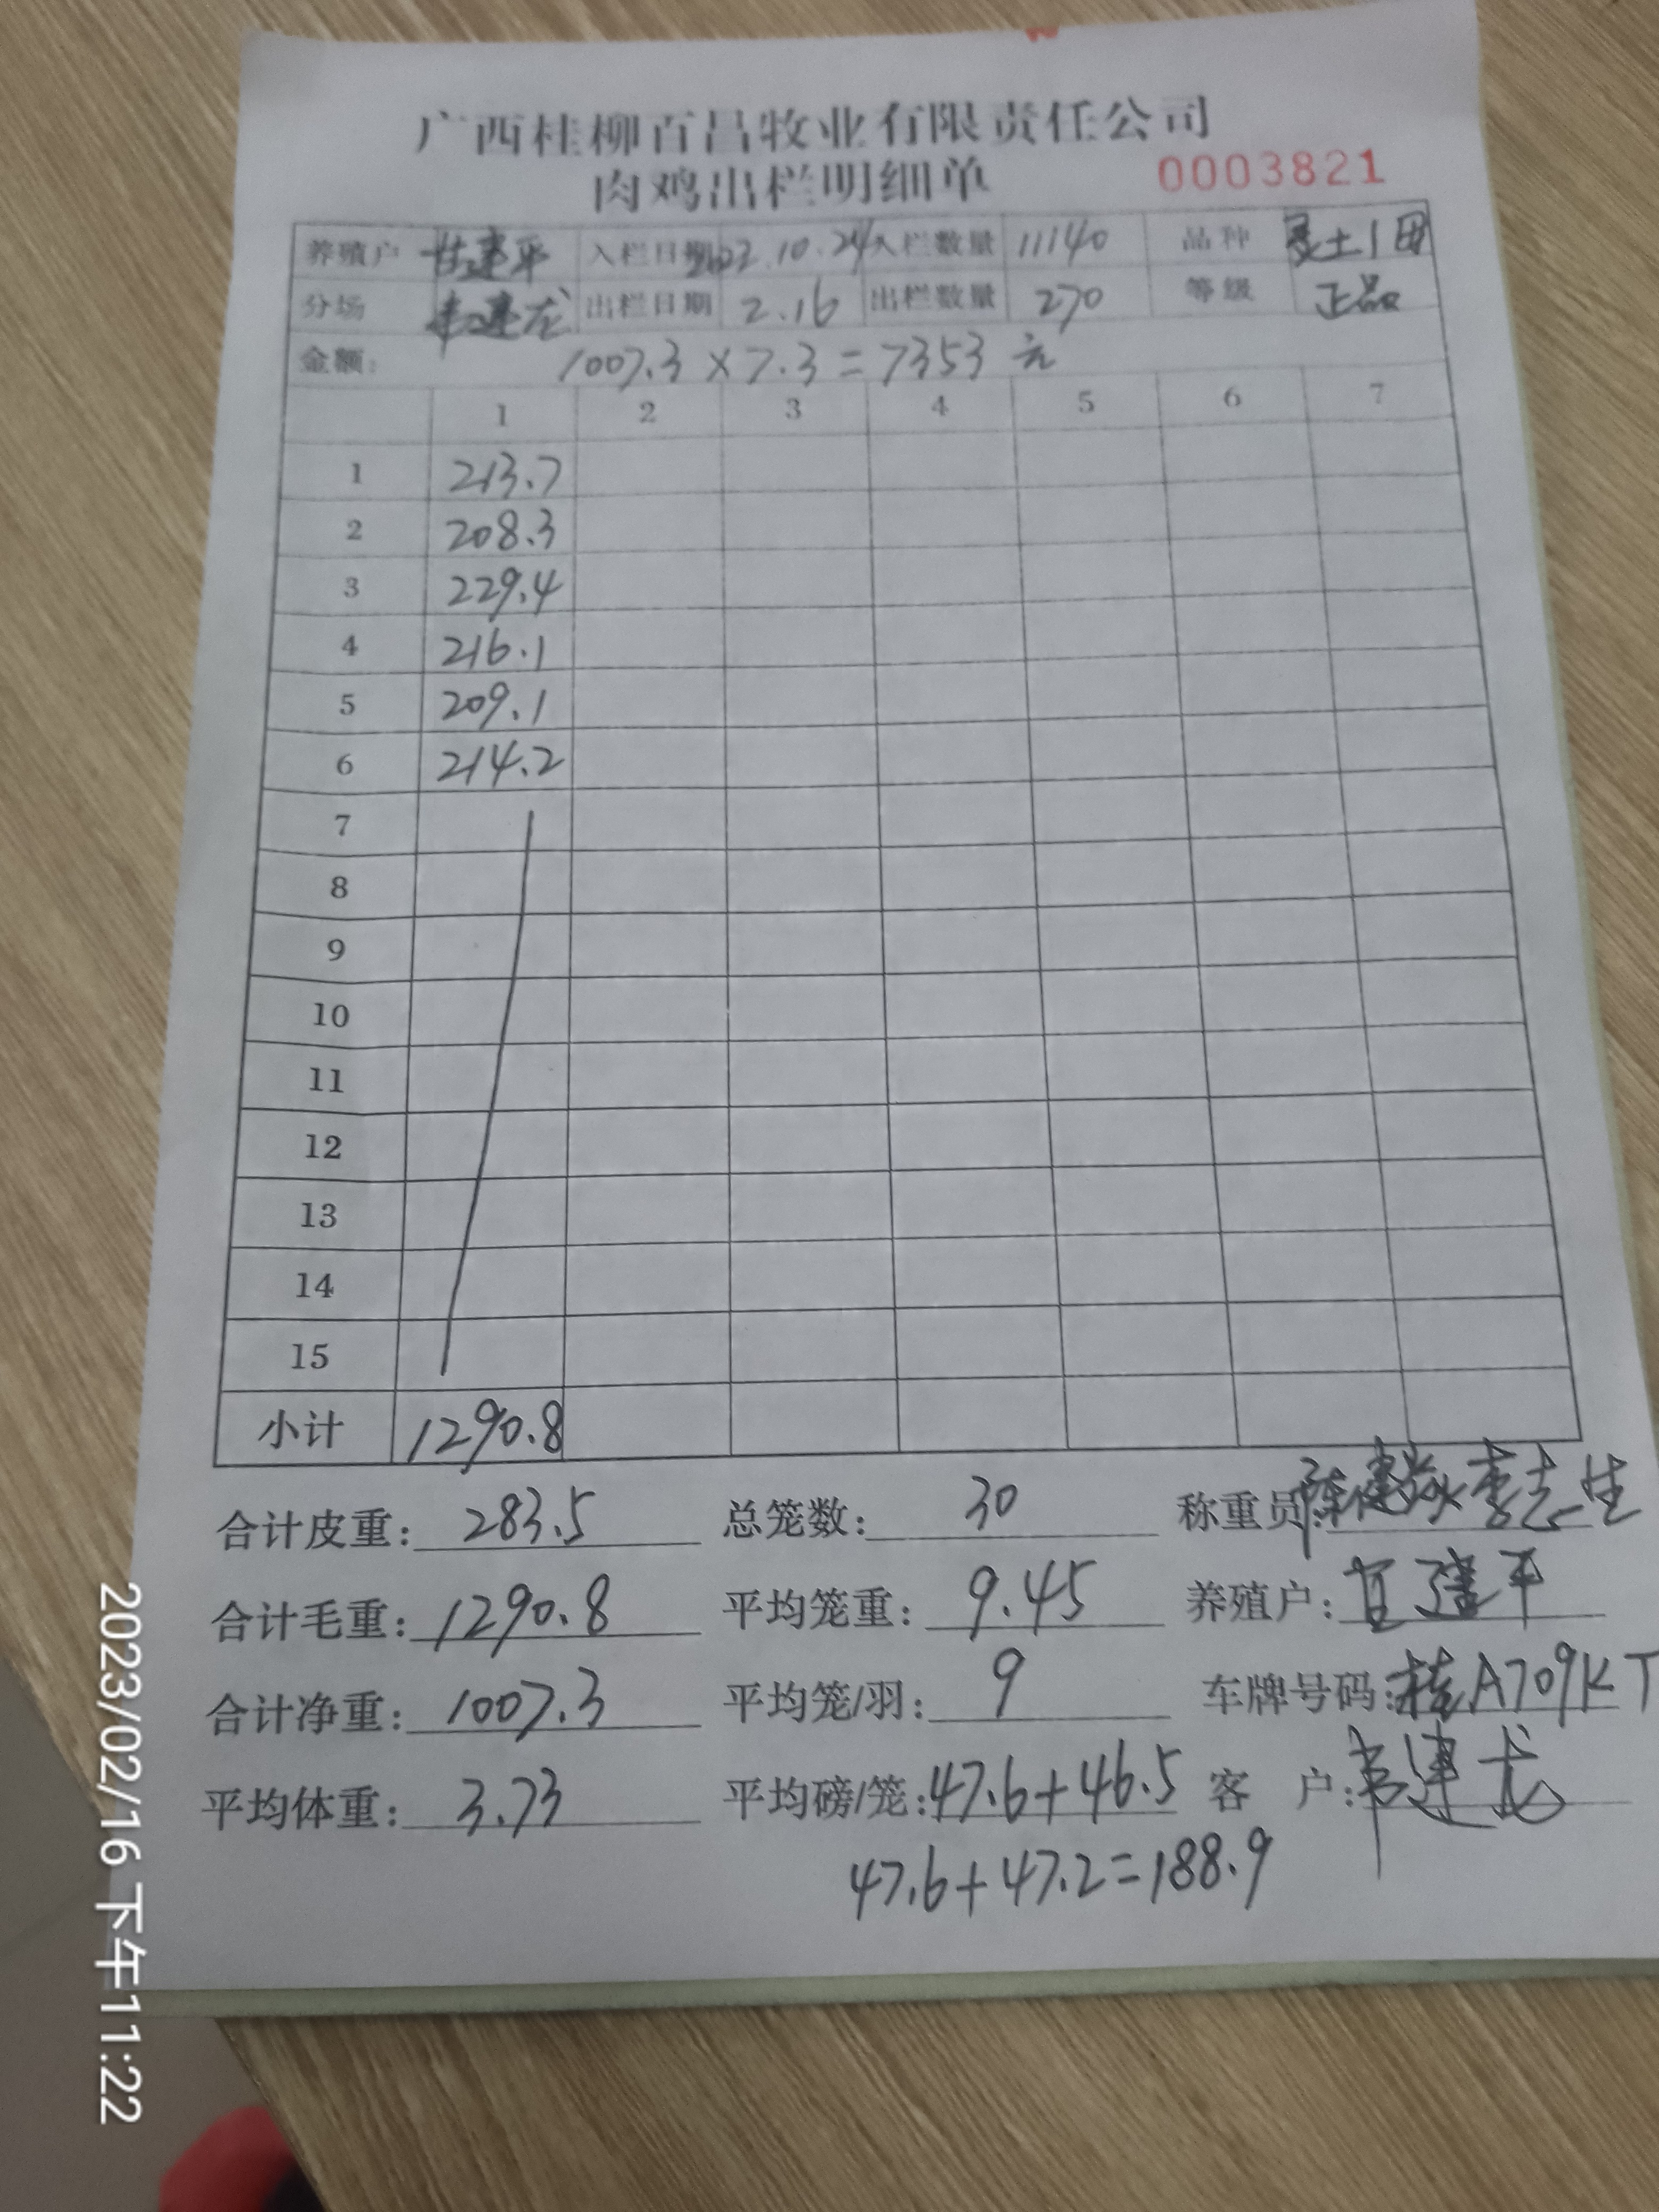 广西桂柳百昌牧业有限责任公司
肉鸡出栏明细单 0003821
养殖户 甘建平 入栏日期 2022.10.24 入栏数量 11140 品种 土1
分场 韦建龙 出栏日期 2.16 出栏数量 270 等级 正品
金额: 1007.3 × 7.3 = 7353 元
1 2 3 4 5 6 7
1 213.7
2 208.3
3 229.4
4 216.1
5 209.1
6 214.2
7
8
9
10
11
12
13
14
15
小计 1290.8
合计皮重: 283.5 总笼数: 30 称重员: 陈健 李志生
合计毛重: 1290.8 平均笼重: 9.45 养殖户: 甘建平
合计净重: 1007.3 平均笼/羽: 9 车牌号码: 桂A709KT
平均体重: 3.73 平均磅/笼: 47.6+46.5 客户: 韦建龙
47.6+47.2=188.9
2023/02/16 下午11:22